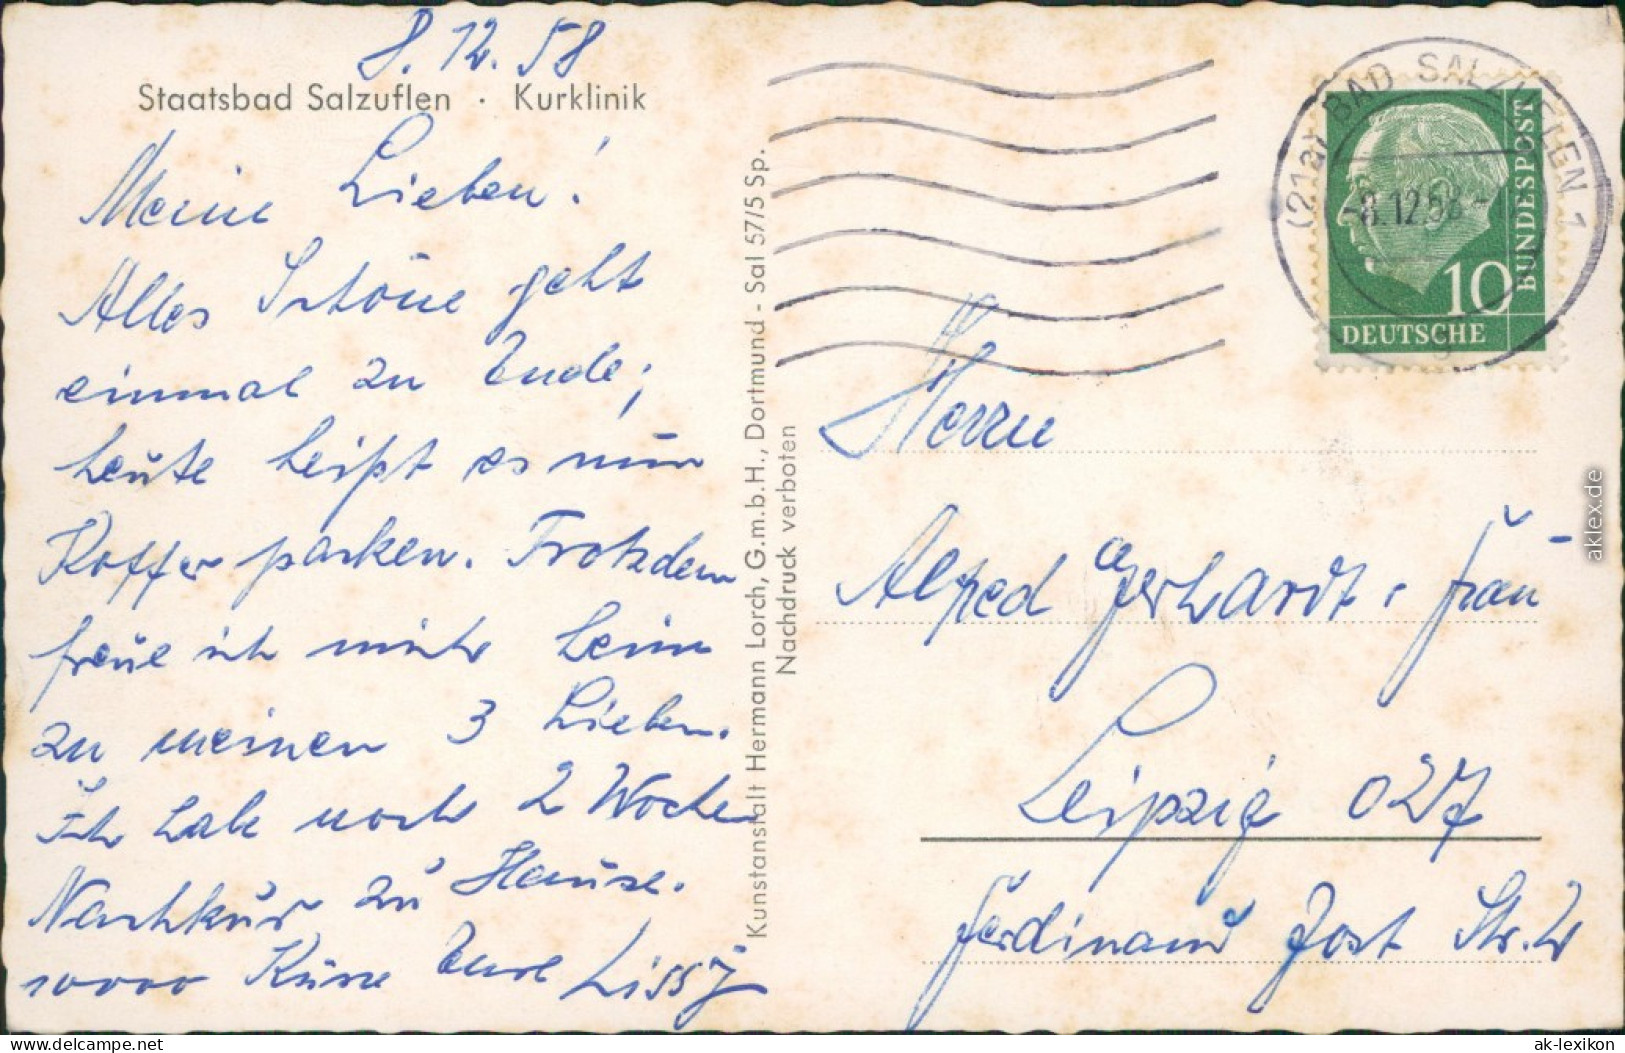 8.12.58
Staatsbad Salzuflen · Kurklinik
Meine Lieben!
Alles Schöne geht
einmal zu Ende;
heute heißt es nun
Koffer packen. Trotzdem
freue ich mich heim
zu meinen 3 Lieben.
Ich habe noch 2 Wochen
Nachkur zu Hause.
10000 Küsse Eure Lissy
Kunstanstalt Hermann Lorch, G.m.b.H., Dortmund - Sal 57/5 Sp.
Nachdruck verboten
(21a) BAD SALZUFLEN 1
-8.12.58-
BUNDESPOST
10
DEUTSCHE
Herrn
Alfred Gerhardt u. Frau
Leipzig O27
Ferdinand Jost Str.
aklex.de
www.delcampe.net
ak-lexikon